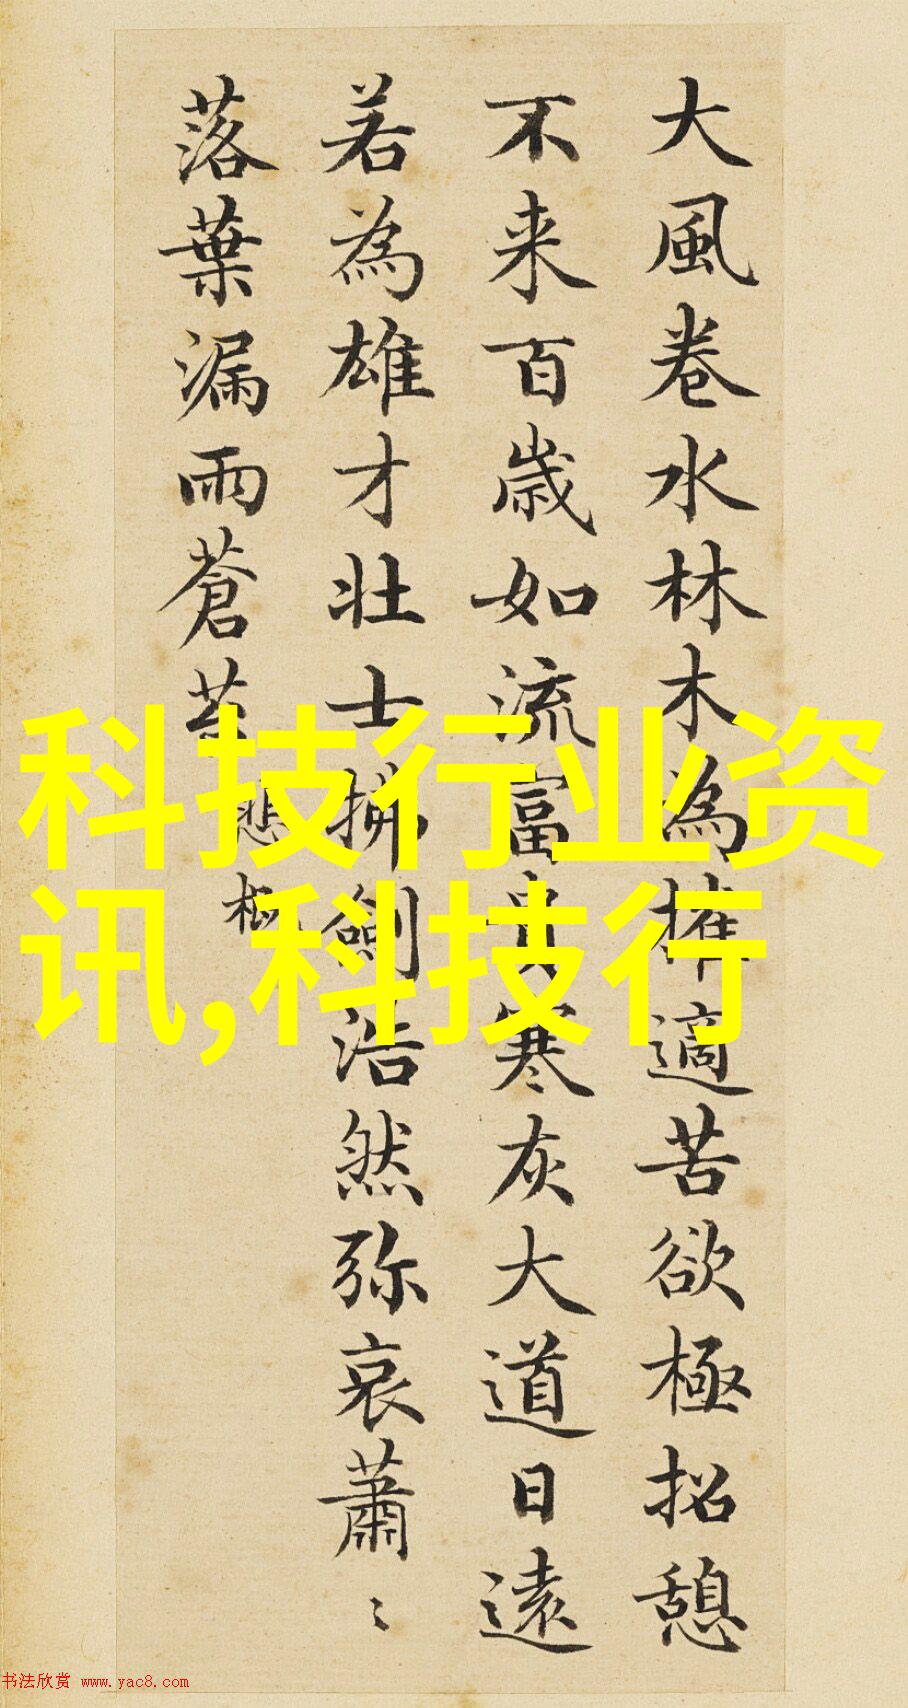 大風卷水林木為摧適苦欲極招憩
不来百歲如流富貴寒灰大道日遠
若為雄才壮士拂劍浩然弥哀蕭〻
落葉漏雨蒼苔
悲慨
科技行业资
讯,科技行
书法欣赏 www.yac8.com